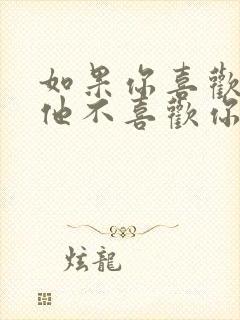 如果你喜歡
他不喜歡你
炫龍